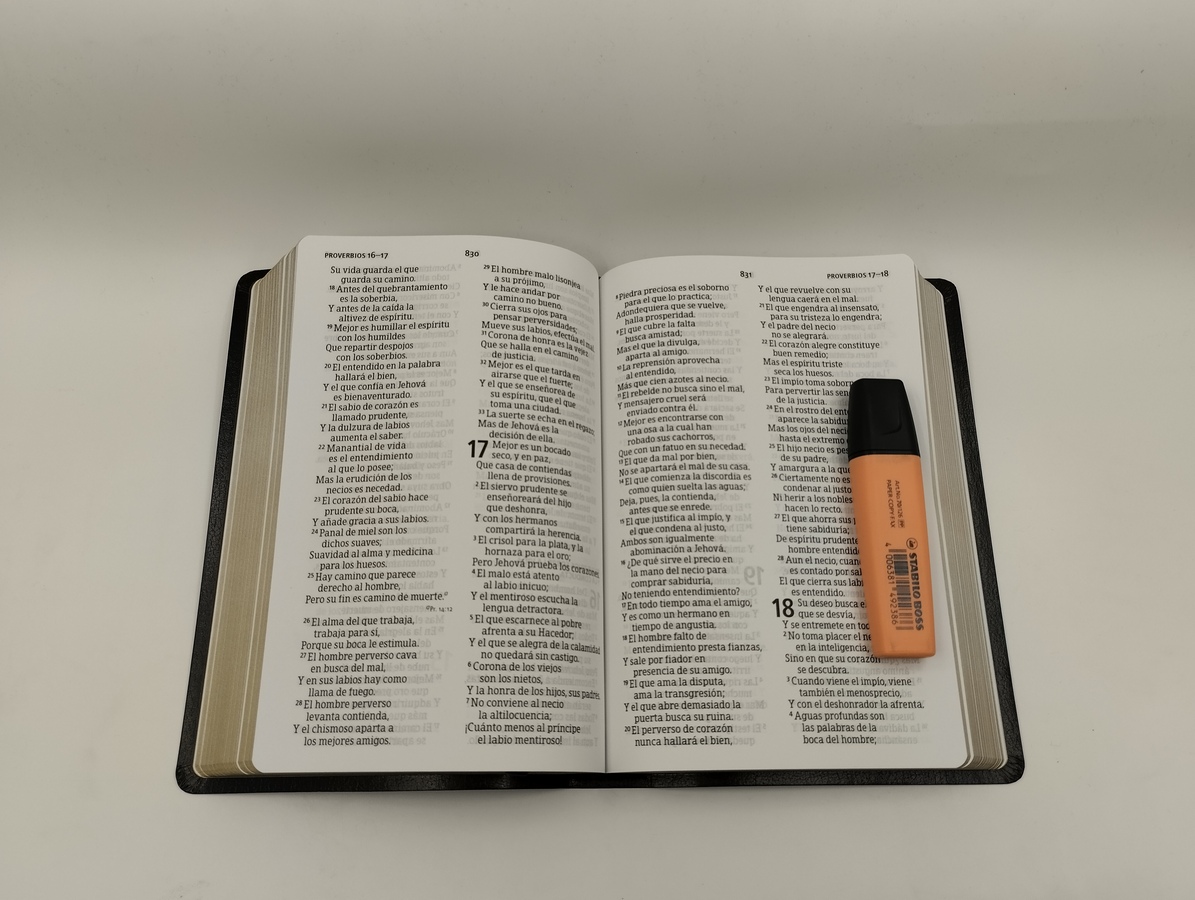 PROVERBIOS 16—17
830
Su vida guarda el que
guarda su camino.
18 Antes del quebrantamiento
es la soberbia,
Y antes de la caída la
altivez de espíritu.
19 Mejor es humillar el espíritu
con los humildes
Que repartir despojos
con los soberbios.
20 El entendido en la palabra
hallará el bien,
Y el que confía en Jehová
es bienaventurado.
21 El sabio de corazón es
llamado prudente,
Y la dulzura de labios
aumenta el saber.
22 Manantial de vida
es el entendimiento
al que lo posee;
Mas la erudición de los
necios es necedad.
23 El corazón del sabio hace
prudente su boca,
Y añade gracia a sus labios.
24 Panal de miel son los
dichos suaves;
Suavidad al alma y medicina
para los huesos.
25 Hay camino que parece
derecho al hombre,
Pero su fin es camino de muerte.
Pr. 14:12
26 El alma del que trabaja,
trabaja para sí,
Porque su boca le estimula.
27 El hombre perverso cava
en busca del mal,
Y en sus labios hay como
llama de fuego.
28 El hombre perverso
levanta contienda,
Y el chismoso aparta a
los mejores amigos.
29 El hombre malo lisonjea
a su prójimo,
Y le hace andar por
camino no bueno.
30 Cierra sus ojos para
pensar perversidades;
Mueve sus labios, efectúa el mal.
31 Corona de honra es la vejez
Que se halla en el camino
de justicia.
32 Mejor es el que tarda en
airarse que el fuerte;
Y el que se enseñorea de
su espíritu, que el que
toma una ciudad.
33 La suerte se echa en el regazo;
Mas de Jehová es la
decisión de ella.
17 Mejor es un bocado
seco, y en paz,
Que casa de contiendas
llena de provisiones.
2 El siervo prudente se
enseñoreará del hijo
que deshonra,
Y con los hermanos
compartirá la herencia.
3 El crisol para la plata, y la
hornaza para el oro;
Pero Jehová prueba los corazones.
4 El malo está atento
al labio inicuo;
Y el mentiroso escucha la
lengua detractora.
5 El que escarnece al pobre
afrenta a su Hacedor;
Y el que se alegra de la calamidad
no quedará sin castigo.
6 Corona de los viejos
son los nietos,
Y la honra de los hijos, sus padres.
7 No conviene al necio
la altilocuencia;
¡Cuánto menos al príncipe
el labio mentiroso!
831
PROVERBIOS 17—18
8 Piedra preciosa es el soborno
para el que lo practica;
Adondequiera que se vuelve,
halla prosperidad.
9 El que cubre la falta
busca amistad;
Mas el que la divulga,
aparta al amigo.
10 La reprensión aprovecha
al entendido,
Más que cien azotes al necio.
11 El rebelde no busca sino el mal,
Y mensajero cruel será
enviado contra él.
12 Mejor es encontrarse con
una osa a la cual han
robado sus cachorros,
Que con un fatuo en su necedad.
13 El que da mal por bien,
No se apartará el mal de su casa.
14 El que comienza la discordia es
como quien suelta las aguas;
Deja, pues, la contienda,
antes que se enrede.
15 El que justifica al impío, y
el que condena al justo,
Ambos son igualmente
abominación a Jehová.
16 ¿De qué sirve el precio en
la mano del necio para
comprar sabiduría,
No teniendo entendimiento?
17 En todo tiempo ama el amigo,
Y es como un hermano en
tiempo de angustia.
18 El hombre falto de
entendimiento presta fianzas,
Y sale por fiador en
presencia de su amigo.
19 El que ama la disputa,
ama la transgresión;
Y el que abre demasiado la
puerta busca su ruina.
20 El perverso de corazón
nunca hallará el bien,
Y el que revuelve con su
lengua caerá en el mal.
21 El que engendra al insensato,
para su tristeza lo engendra;
Y el padre del necio
no se alegrará.
22 El corazón alegre constituye
buen remedio;
Mas el espíritu triste
seca los huesos.
23 El impío toma soborn
Para pervertir las sen
de la justicia.
24 En el rostro del ente
aparece la sabidu
Mas los ojos del neci
hasta el extremo
25 El hijo necio es pe
de su padre,
Y amargura a la que
26 Ciertamente no es
condenar al justo
Ni herir a los nobles
hacen lo recto.
27 El que ahorra sus
tiene sabiduría;
De espíritu prudente
hombre entendid
28 Aun el necio, cuan
es contado por sa
El que cierra sus labi
es entendido.
18 Su deseo busca e
que se desvía,
Y se entremete en to
2 No toma placer el ne
en la inteligencia,
Sino en que su corazón
se descubra.
3 Cuando viene el impío, viene
también el menosprecio,
Y con el deshonrador la afrenta.
4 Aguas profundas son
las palabras de la
boca del hombre;
Art.No.70/125
PAPER COPY FAX
STABILO BOSS
4 006381 492386